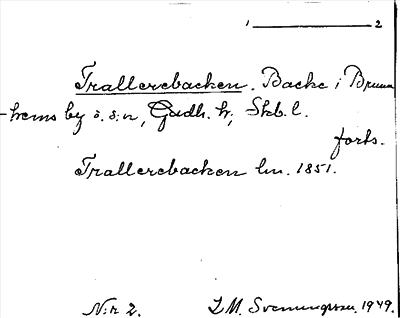 1 2
Trallerebacken. Backe i Brunn
-hems by ö. s:n, Gudh. h; Skb. l.
forts.
Trallerebacken lm. 1851.
N:r 2. I. M. Svenungsson. 1949.